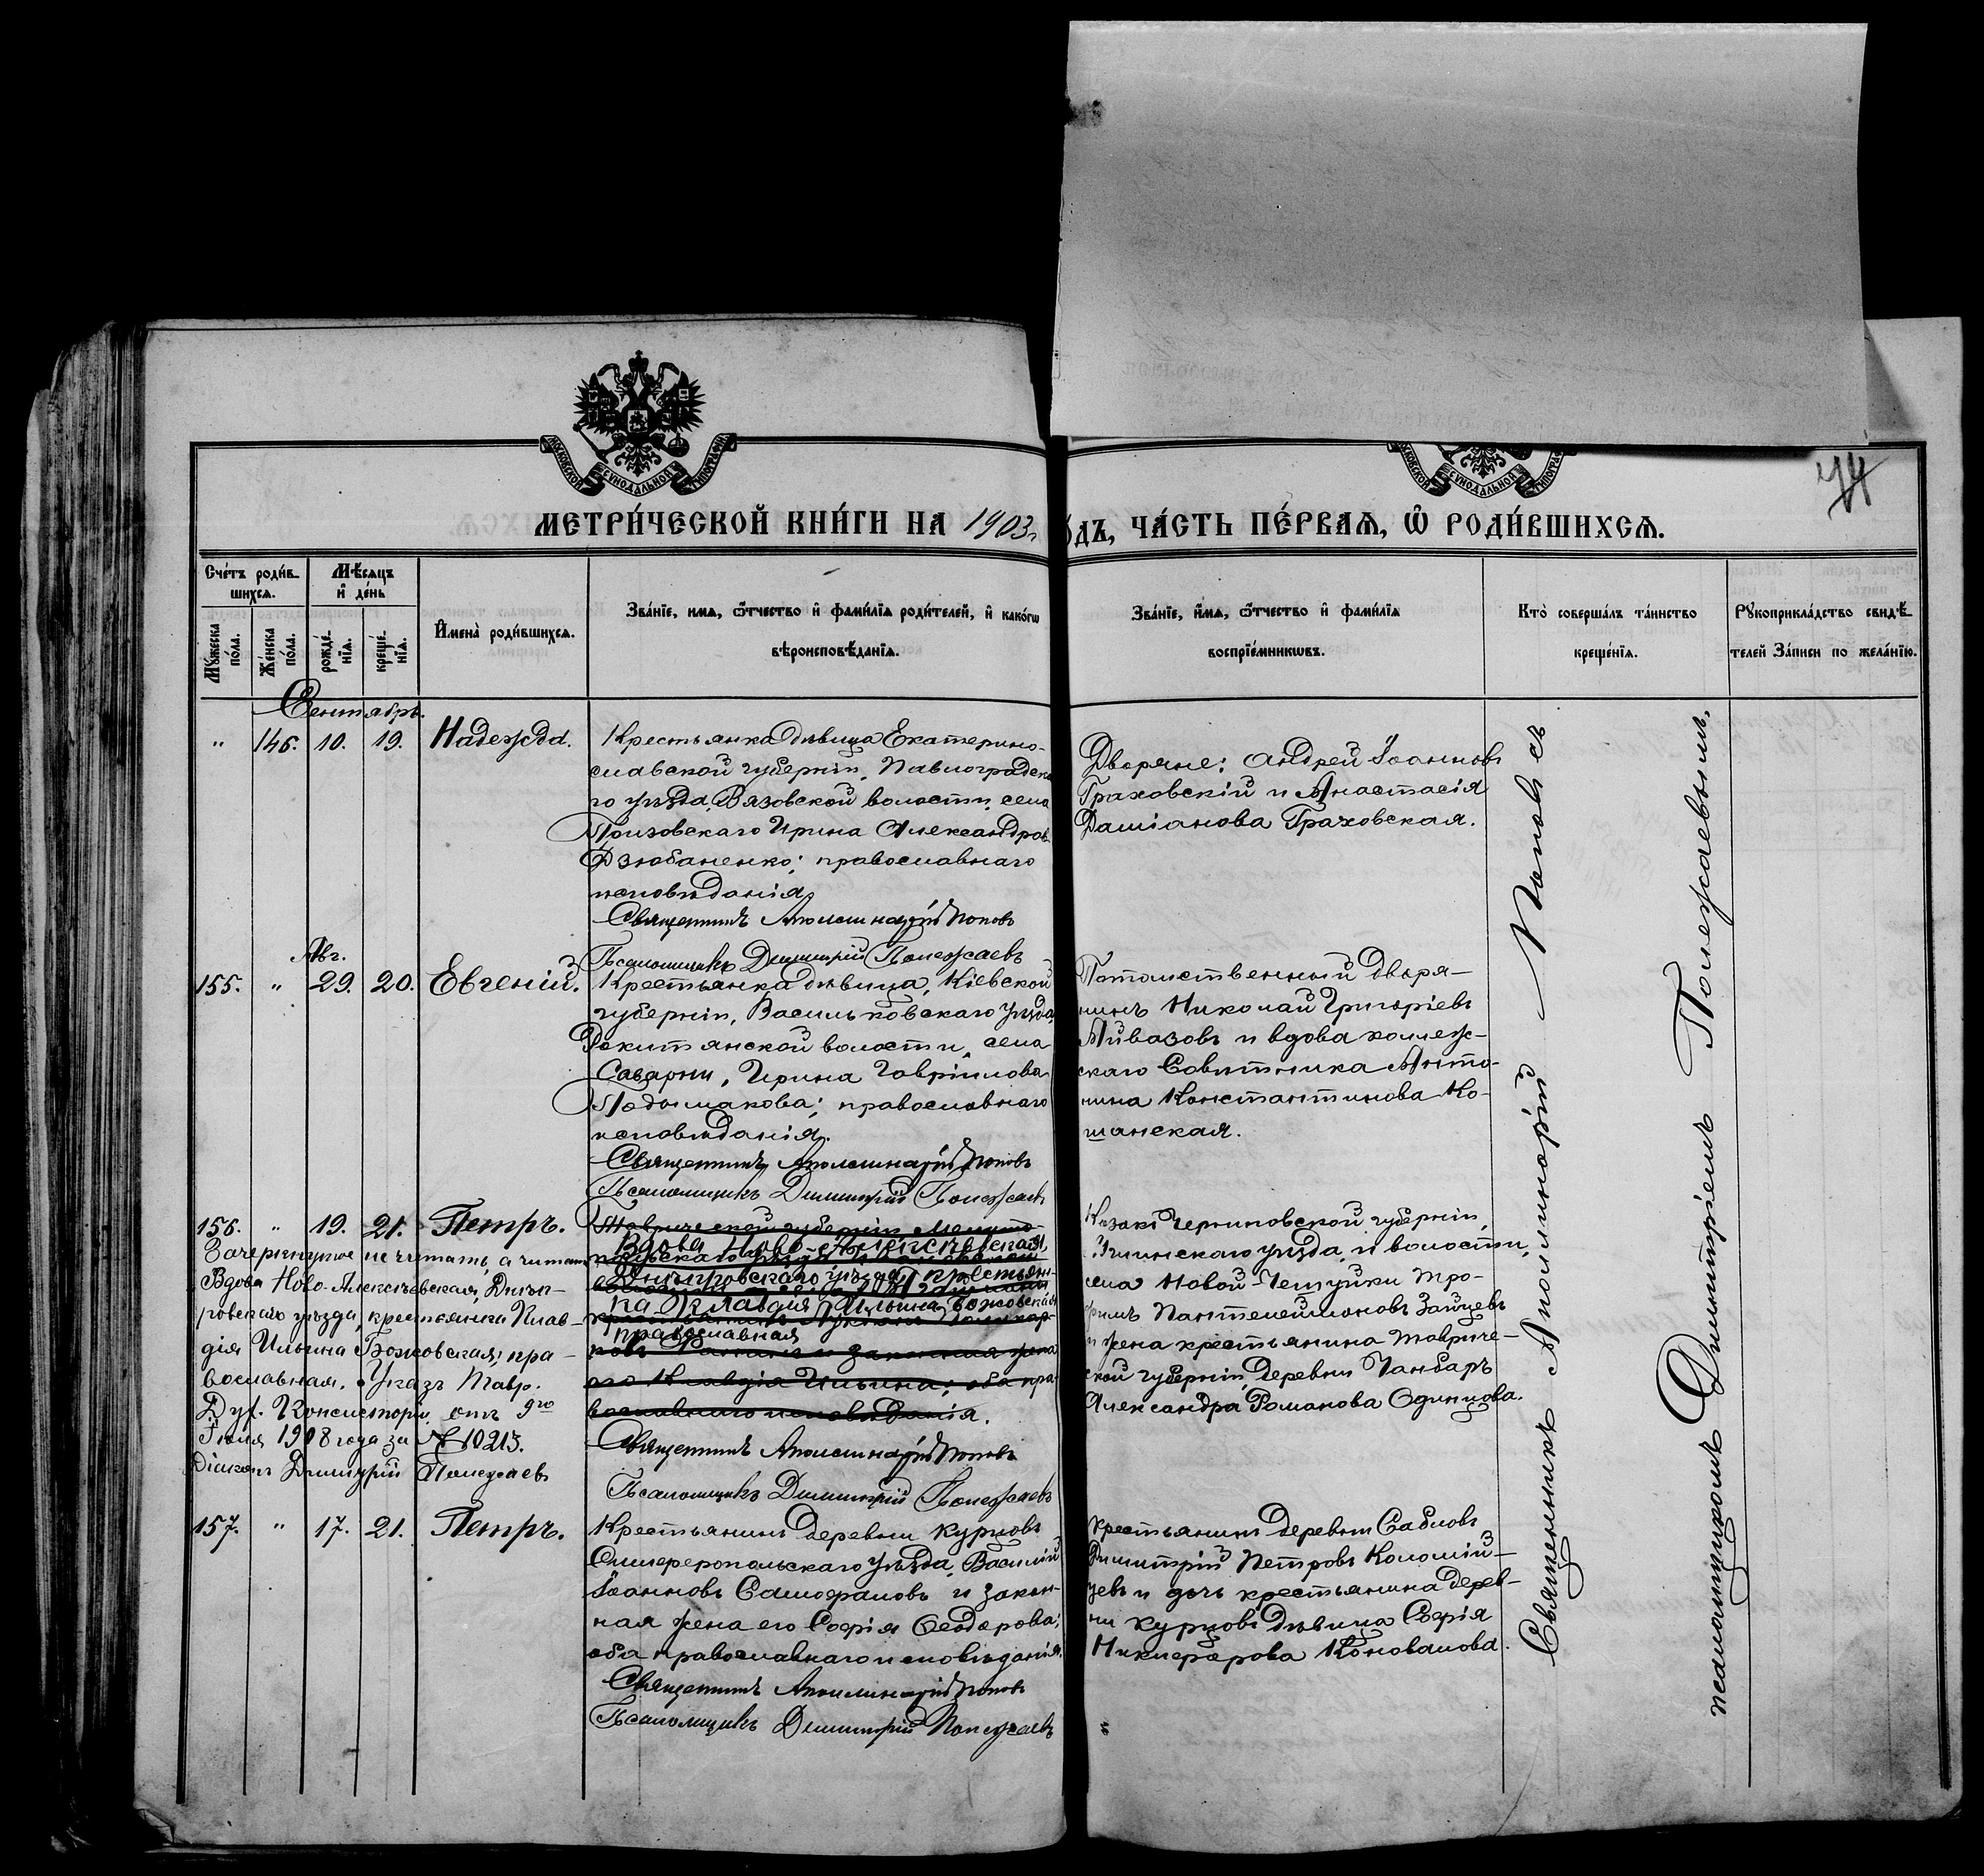 МОСКОВСКОЙ СѴНОДАЛЬНОЙ ТИПОГРАФІИ
МОСКОВСКОЙ СѴНОДАЛЬНОЙ ТИПОГРАФІИ
44
МЕТРИ́ЧЕСКОЙ КНИ́ГИ НА 1903 г.
О́ДЪ, ЧА́СТЬ ПЕ́РВАЯ, Ѿ РОДИ́ВШИХСѦ.
Сче́тъ роди́в-
шихсѧ.
Мꙋжеска по́ла.
Же́нска по́ла.
Мѣ́сѧцъ
и҆ де́нь
рожде́-
нїѧ.
креще́-
нїѧ.
И҆мена̀ роди́вшихсѧ.
Зва́нїе, имѧ, ѻ҆́тчество и҆ фами́лїѧ роди́телей, и҆ како́гѡ
вѣроисповѣ́данїѧ.
Зва́нїе, и҆́мѧ, ѻ҆́тчество и҆ фами́лїѧ
воспрїе́мникѡвъ.
Кто̀ соверша́лъ та́инство
креще́нїѧ.
Рꙋкоприкла́дство свидѣ́-
телей За́писи по жела́нїю.
Сентябрь.
" 146. 10. 19. Надежда.
Крестьянка дѣвица Екатерино-
славской губерніи, Павлоградска-
го уѣзда, Вязовской волости, села
Ирина Александрова
Дзюбаненко; православнаго
исповѣданія.
Священникъ Аполлинарій Поповъ
Псаломщикъ Димитрій Полежаевъ
Дворяне: Андрей Іоанновъ
Граховскій и Анастасія
Даміанова Граховская.
Авг.
155. " 29. 20. Евгеній.
Крестьянка дѣвица, Кіевской
губерніи, Васильковскаго уѣзда,
Рокитянской волости, села
Саварни, Ирина Гавріилова
православнаго
исповѣданія.
Священникъ Аполлинарій Поповъ
Псаломщикъ Димитрій Полежаевъ
Потомственный дворя-
нинъ Николай Григоріевъ
Айвазовъ и вдова коллеж-
скаго Совѣтника Анто-
нина Константинова Ко-
шанская.
156. " 19. 21. Петръ.
Зачеркнутое не читать, а читать
Вдова Ново-Алексѣевская, Днѣп-
ровскаго уѣзда, крестьянка Клав-
дія Ильина Божовская; пра-
вославная. Указъ Тавр.
Дух. Консисторіи отъ 9го
Іюля 1908 года за № 10213.
Діаконъ Димитрій Полежаевъ
Таврической губерніи, Мелито-
Вдова Ново-Алексѣевская,
Днѣпровскаго уѣзда, крестьян-
ка Клавдія Ильина Божовская
православная
законная жена
его Клавдія Ильина; оба пра-
вославнаго исповѣданія.
Священникъ Аполлинарій Поповъ
Псаломщикъ Димитрій Полежаевъ
Козакъ Черниговской губерніи,
уѣзда и волости,
села Новой-Чешуйки Тро-
фимъ Пантелеймоновъ Зайцевъ
и жена крестьянина Тавриче-
ской губерніи, деревни Чанбаръ
Александра Романова Одинцова.
157. " 17. 21. Петръ.
Крестьянинъ деревни Курцовъ
Симферопольскаго уѣзда, Василій
Іоанновъ Самофаловъ и закон-
ная жена его Софія Ѳеодорова;
оба православнаго исповѣданія.
Священникъ Аполлинарій Поповъ
Псаломщикъ Димитрій Полежаевъ
Крестьянинъ деревни Сабловъ
Димитрій Петровъ Коломій-
цевъ и дочь крестьянина дерев-
ни Курцовъ дѣвица Софія
Никифорова Коновалова.
Священникъ Аполлинарій Поповъ съ
псаломщикомъ Димитріемъ Полежаевымъ.